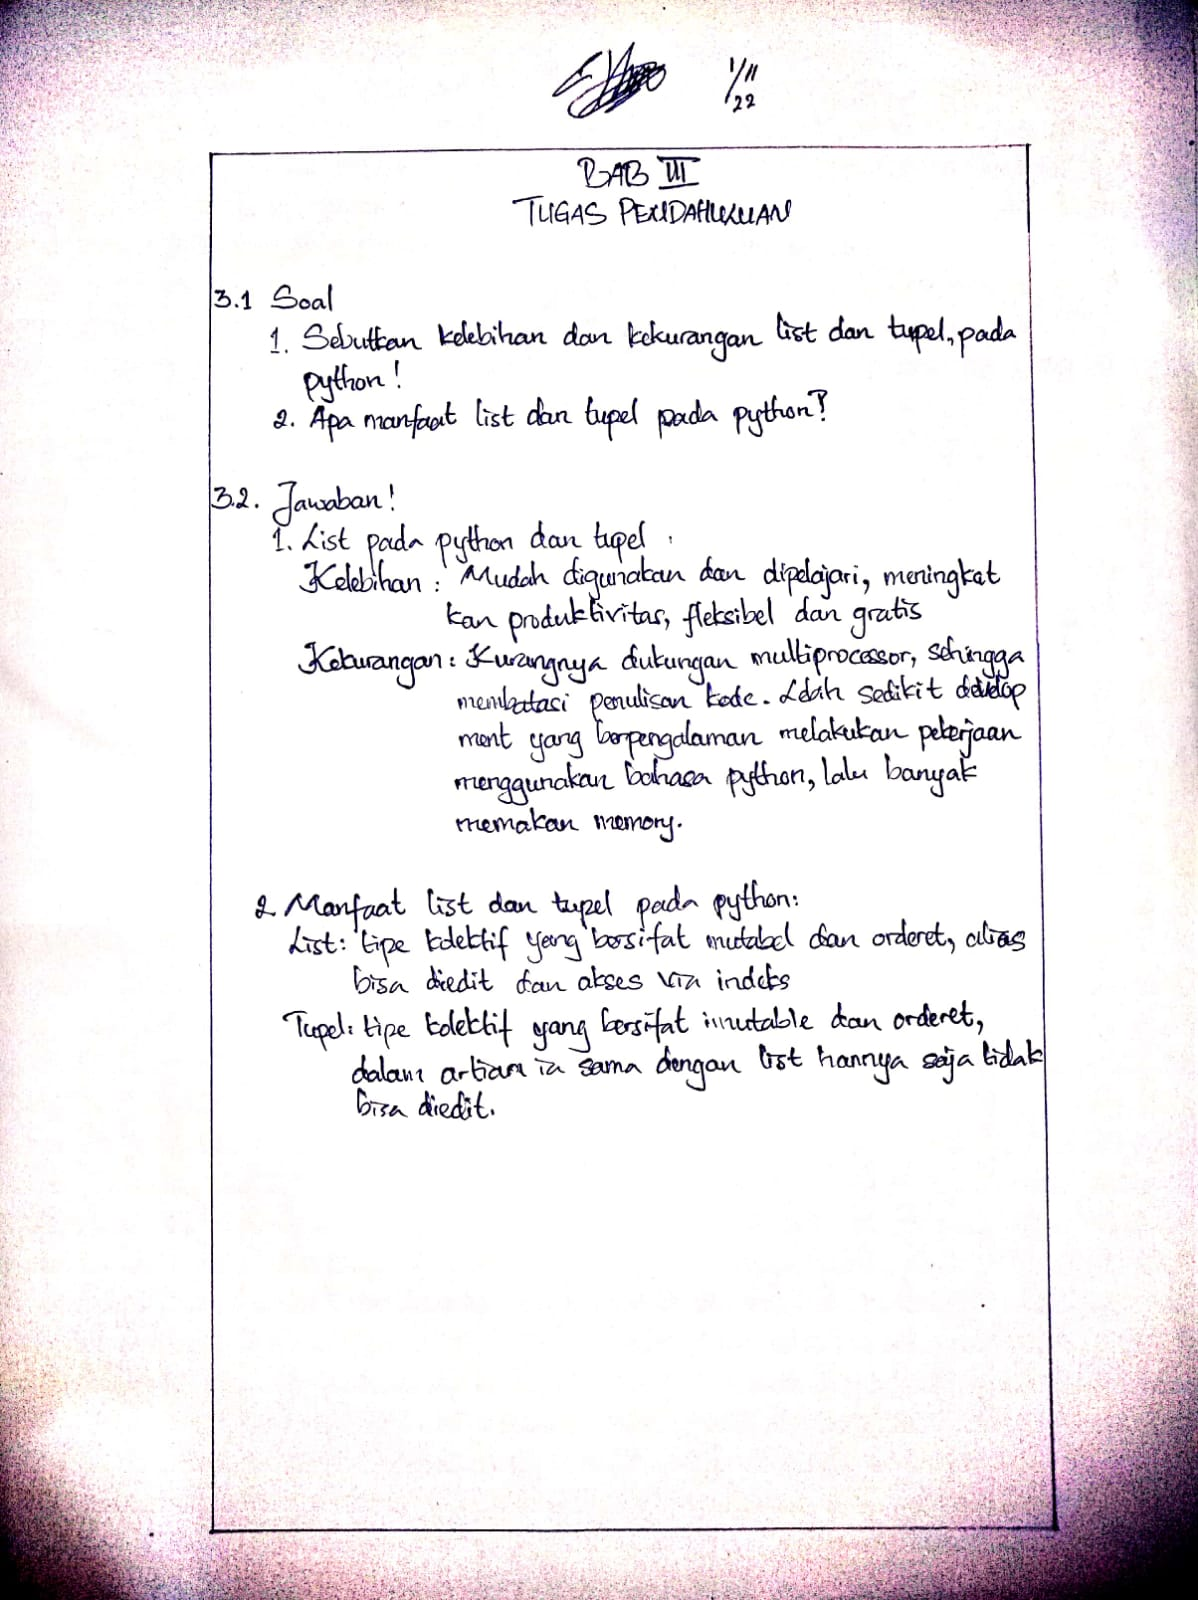 1/11
22
BAB III
TUGAS PENDAHULUAN
3.1 Soal
1. Sebutkan kelebihan dan kekurangan list dan tupel, pada
python!
2. Apa manfaat list dan tupel pada python?
3.2. Jawaban!
1. List pada python dan tupel :
Kelebihan : Mudah digunakan dan dipelajari, meningkat
kan produktivitas, fleksibel dan gratis
Kekurangan : Kurangnya dukungan multiprocessor, sehingga
membatasi penulisan kode. Lebih sedikit develop
ment yang berpengalaman melakukan pekerjaan
menggunakan bahasa python, lalu banyak
memakan memory.
2 Manfaat list dan tupel pada python:
List: tipe kolektif yang bersifat mutabel dan orderet, alias
bisa diedit dan akses via indeks
Tupel: tipe kolektif yang bersifat immutable dan orderet,
dalam artian ia sama dengan list hannya saja tidak
bisa diedit.